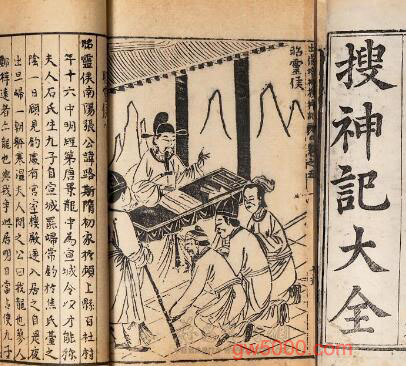 搜神記大全
昭靈侯
昭靈侯南陽張公諱路斯隋初家於潁上縣百社村
年十六中明經第唐景龍中為宣城令以才能称
夫人石氏生九子自宣城罷歸常釣於焦氏臺之
陰一日顧見釣處有宮室樓殿遂入居之自是夜
出旦歸一朝躰寒濕夫人問之公曰我龍也蓼人
鄭祥遠者亦龍也與我爭此居明日當占使九子
gw5000.com